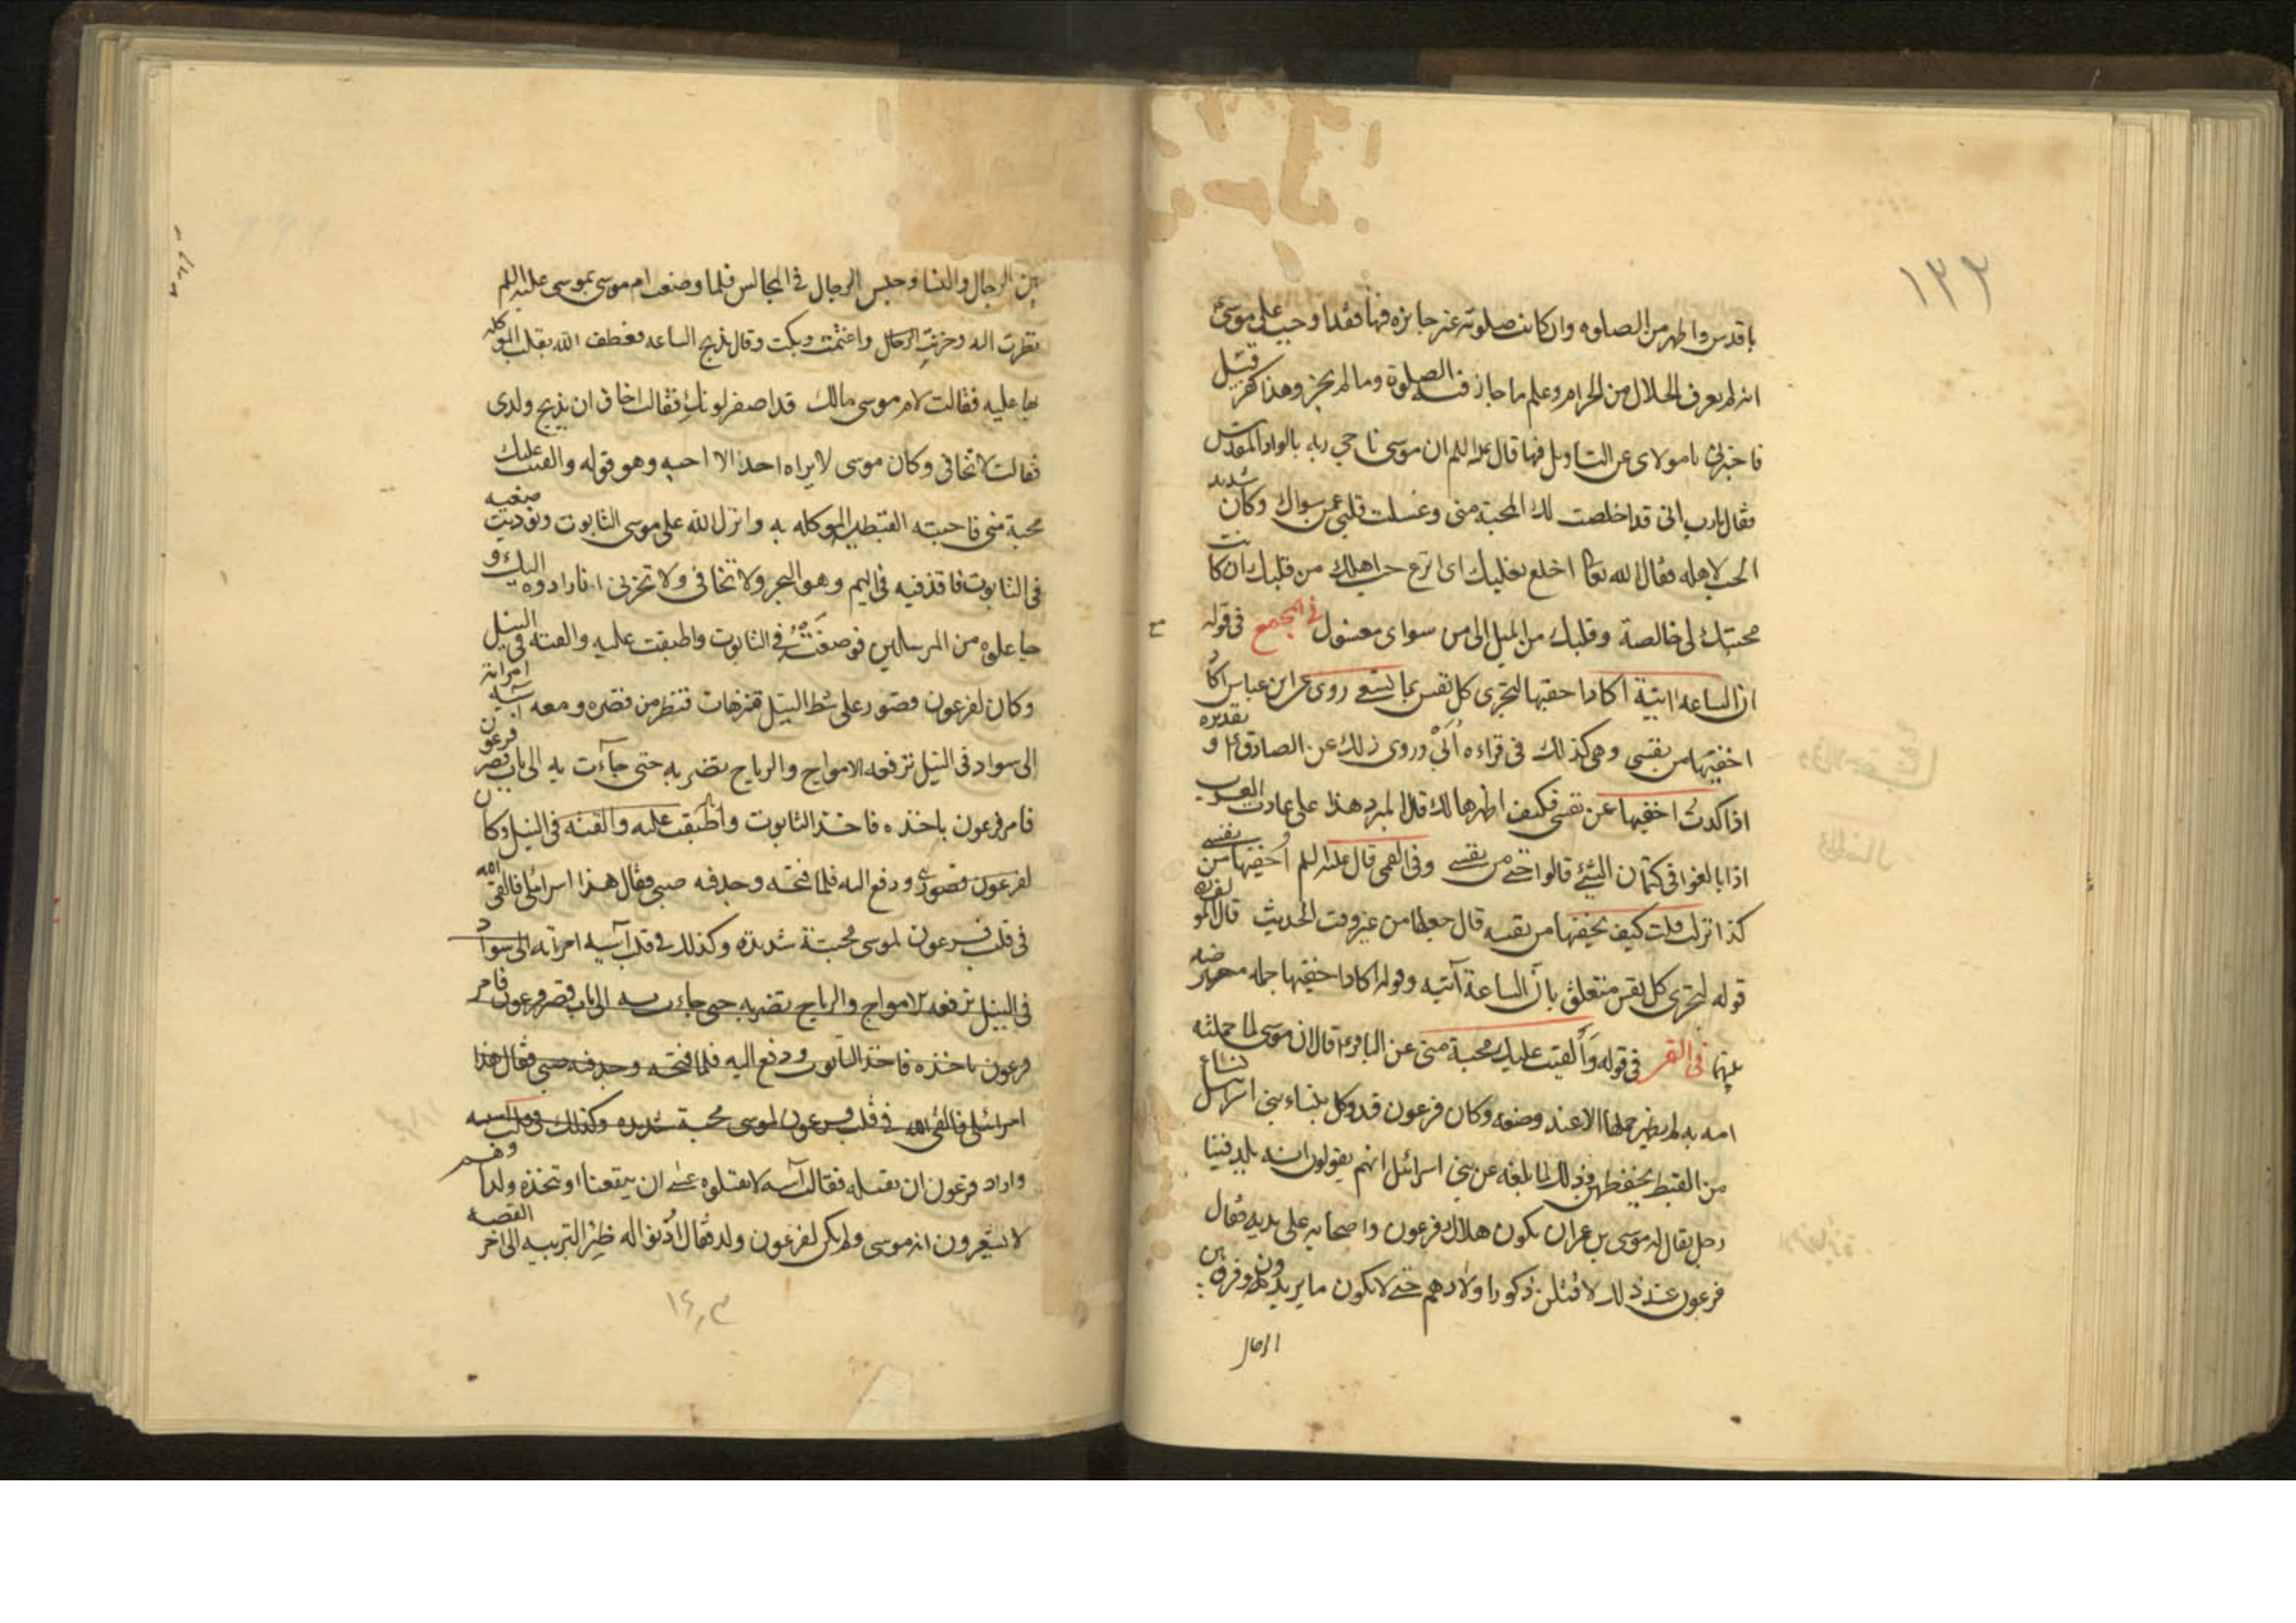 ١٣٣
باقدس واطهر من الصلوه وان كانت صلوته غير جايزه فيها فقد اوجب على موسى
انه لم يعرف الحلال من الحرام وعلم ما جاز فيه الصلوة وما لم يجز وهذا كفر قلت
فاخبرنى يا مولاى عن التاويل فيها قال عليه السلم ان موسى ناجى ربه بالواد المقدس
فقال يارب انى قد اخلصت لك المحبة منى وغسلت قلبى عمن سواك وكان شديد
الحب لاهله فقال الله تعالى اخلع نعليك اى انزع حب اهلك من قلبك ان كانت
محبتك لى خالصة وقلبك من الميل الى من سواى مغسول فى المجمع فى قوله
ان الساعة اتية اكاد اخفيها لتجزى كل نفس بما تسعى روى عن ابن عباس اكاد
اخفيها من نفسى وهى كذلك فى قراءه اُبَىّ وروى ذلك عن الصادق ع و تقديره
اذا كدت اخفيها عن نفسى فكيف اظهرها لك قال المبرد هذا على عادت العرب
اذا بالغوا فى كتمان الشيئ قالوا حتى من نفسى وفى القمى قال عليه السلم اخفيها من نفسى
كذا نزلت قلت كيف يخفيها من نفسه قال جعلها من غير وقت الحديث قال المؤلف
قوله لتجزى كل نفس متعلق بان الساعة آتيه وقوله اكاد اخفيها جمله معترضه
بينهما فى القمى فى قوله وَألقيت عليك محبة منى عن الباقر ع قال ان موسى لما حملته
امه به لم يظهر حملها الا عند وضعه وكان فرعون قد وكل بنساء بنى اسرائيل نساء
من القبط يحفظهن وذلك لما بلغه عن بنى اسرائيل انهم يقولون انه يلد فينا
رجل يقال له موسى بن عمران يكون هلاك فرعون واصحابه على يديه فقال
فرعون عند ذلك لاقتلن ذكور اولادهم حتى لا يكون ما يريدون وفرق بين
الرجال
بين الرجال والنسا وحبس الرجال فى المجالس فلما وضعت ام موسى بموسى عليه السلم
نظرت اليه وحزنت واغتمت وبكت وقال يذبح الساعه فعطف الله بقلب الموكله
بها عليه فقالت لام موسى مالك قد اصفر لونك فقالت اخاف ان يذبح ولدى
فقالت لا تخافى وكان موسى لا يراه احد الا احبه وهو قوله والقيت عليك
محبة منى فاحبته القبطيه الموكله به وانزل الله على موسى التابوت ونوديت ضعيه
فى التابوت فاقذفيه فى اليم وهو البحر ولا تخافى ولا تحزنى انا رادوه اليك و
جاعلوه من المرسلين فوضعته فى التابوت واطبقت عليه والقته فى النيل
وكان لفرعون قصور على شط النيل متنزهات فنظر من قصره ومعه آسيه امراته
الى سواد فى النيل ترفعه الامواج والرياح تضربه حتى جآءت به الى باب قصر فرعون
فامر فرعون باخذه فاخذ التابوت واطبقت عليه والقته فى النيل وكان
لفرعون قصور ودفع اليه فلما فتحه وجد فيه صبى فقال هذا اسرائيلى فالقى الله
فى قلب فرعون لموسى محبة شديدة وكذلك فى قلب آسيه امراته الى سواد
فى النيل ترفعه الامواج والرياح تضربه حتى جاءت به الى باب قصر فرعون فامر
فرعون باخذه فاخذ التابوت ودفع اليه فلما فتحه وجد فيه صبى فقال هذا
اسرائيلى فالقى الله فى قلب فرعون لموسى محبة شديده وكذلك فى قلب آسيه
واراد فرعون ان يقتله فقالت آسيه لا تقتلوه عسى ان ينفعنا او نتخذه ولدا وهم
لا يشعرون انه موسى ولم يكن لفرعون ولد فقال ادنوا له ظئرا لتربيه الى اخر القصه